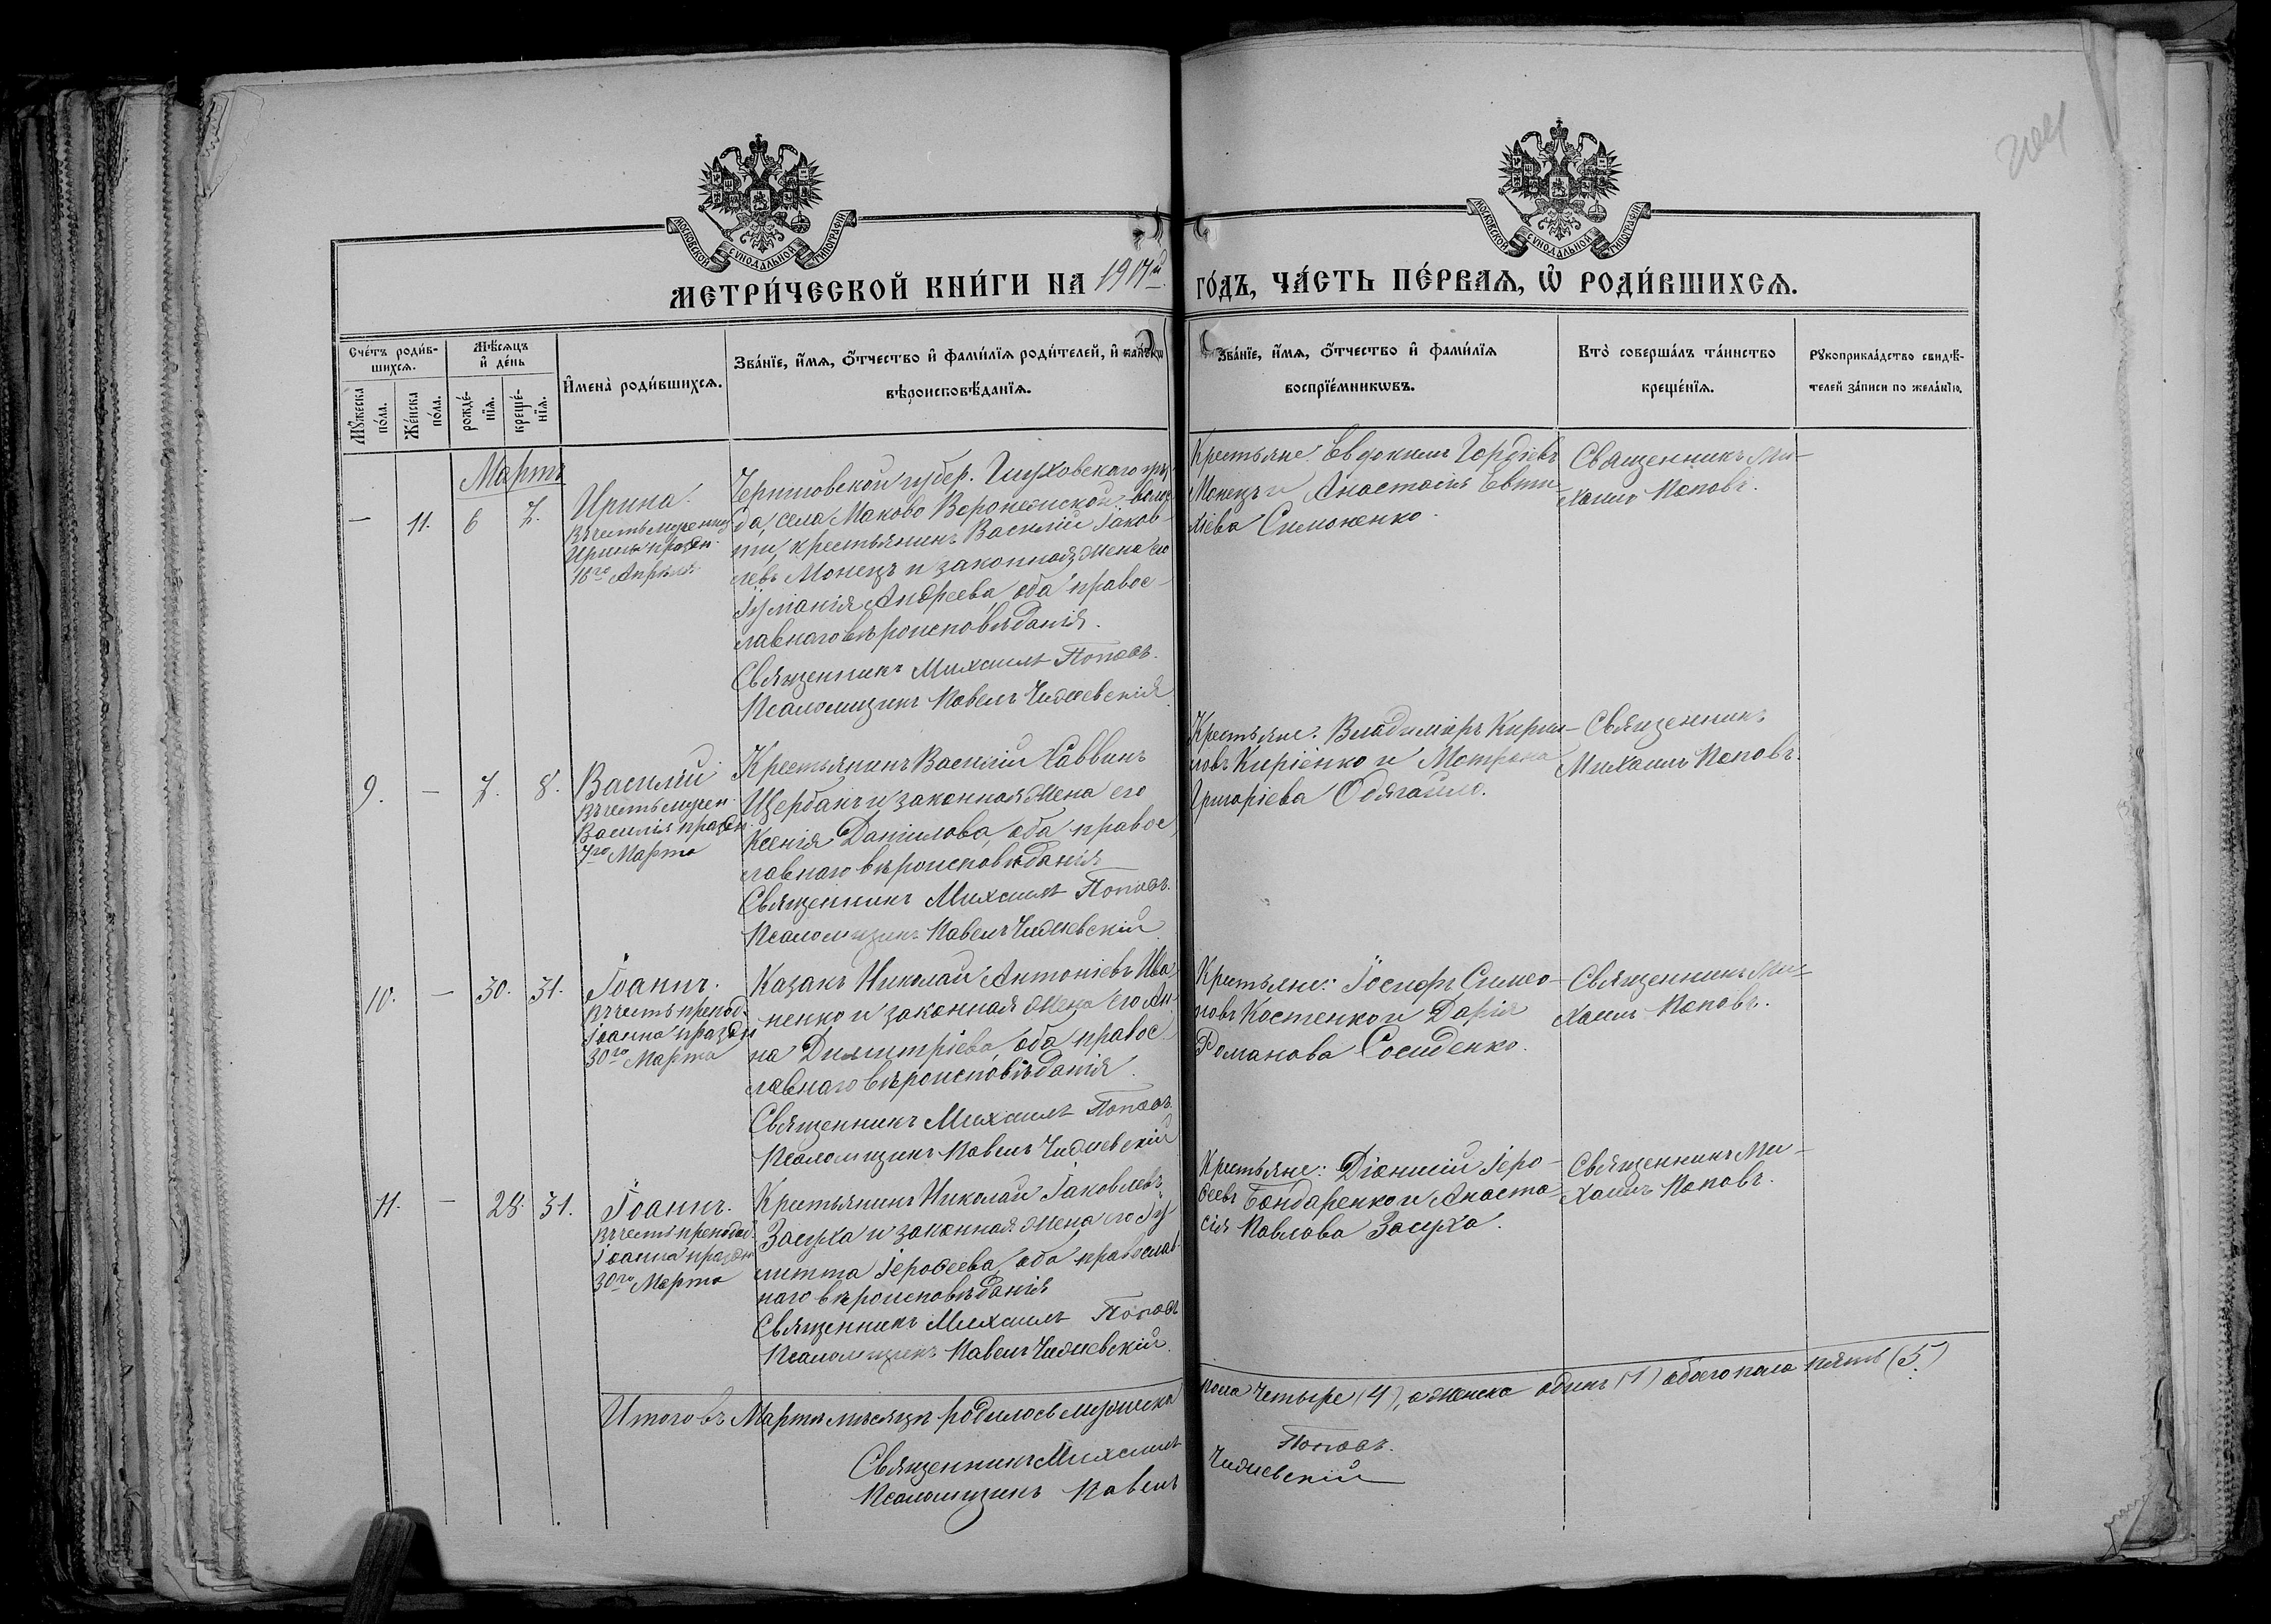 МОСКОВСКОЙ СУНОДАЛЬНОЙ ТИПОГРАФIИ
МОСКОВСКОЙ СУНОДАЛЬНОЙ ТИПОГРАФIИ
МЕТРИ́ЧЕСКОЙ КНИ́ГИ НА 1917й ГО́ДЪ, ЧА́СТЬ ПЕ́РВАѦ, Ѡ РОДИ́ВШИХСѦ.
Сче́тъ роди́в-
шихсѧ.
Мѣ́сѧцъ
и де́нь
Мꙋ́жеска
по́ла.
Же́нска
по́ла.
рожде́-
нїѧ.
креще́-
нїѧ.
Имена̀ роди́вшихсѧ.
Зва́нїе, и́мѧ, о́тчество и фами́лїѧ роди́телей, и како́гѡ
вѣроисповѣ́данїѧ.
Зва́нїе, и́мѧ, о́тчество и фами́лїѧ
воспрїе́мникѡвъ.
Кто̀ соверша́лъ та́инство
креще́нїѧ.
Рꙋкоприкла́дство свидѣ́-
телей за́писи по жела́нїю.
Мартъ
— 11. 6 7.
Ирина.
Въ честь мучениц
Ирины праздн.
16го Апрѣля
Черниговской губер. Глуховскаго уѣз-
да, села Маково Воронежской волос-
ти, крестьянинъ Василій Іаков-
левъ Монецъ и законная жена его
Іуліанія Андреева, оба правос-
лавнаго вѣроисповѣданія.
Священникъ Михаилъ Поповъ.
Псаломщикъ Павелъ Чудиевскій
Крестьяне: Евдокимъ Гордіевъ
Монецъ и Анастасія Евти-
хіева Симоненко.
Священникъ Ми-
хаилъ Поповъ.
9. — 7. 8.
Василій
Въ честь мучен.
Василія праздн.
7го Марта
Крестьянинъ Василій Саввинъ
Щербакъ и законная жена его
Ксенія Даніилова, оба правос
лавнаго вѣроисповѣданія
Священникъ Михаилъ Поповъ.
Псаломщикъ Павелъ Чудиевскій
Крестьяне: Владиміръ Кирил-
ловъ Киріенко и Матрона
Григоріева Одягайло.
Священникъ
Михаилъ Поповъ.
10. — 30. 31.
Іоаннъ.
Въ честь препод.
Іоанна праздн
30го Марта
Казакъ Николай Антоніевъ Ива
ненко и законная жена его Ан-
на Димитріева, оба правос
лавнаго вѣроисповѣданія.
Священникъ Михаилъ Поповъ.
Псаломщикъ Павелъ Чудиевскій
Крестьяне: Іосифъ Симео-
новъ Костенко и Дарія
Романова Сосиденко.
Священникъ Ми-
хаилъ Поповъ.
11. — 28. 31.
Іоаннъ.
Въ честь преподоб.
Іоанна праздн
30го Марта
Крестьянинъ Николай Іаковлевъ
Засуха и законная жена его Іу
литта Іерофеева, оба православ-
наго вѣроисповѣданія
Священникъ Михаилъ Поповъ
Псаломщикъ Павелъ Чудиевскій.
Крестьяне: Діонисій Іеро-
феевъ Бондаренко и Анаста-
сія Павлова Засуха.
Священникъ Ми-
хаилъ Поповъ.
Итого въ Мартѣ мѣсяцѣ родилось мужеска пола четыре (4), а женска одинъ (1) обоего пола пять (5.)
Священникъ Михаилъ Поповъ.
Псаломщикъ Павелъ Чудиевскій